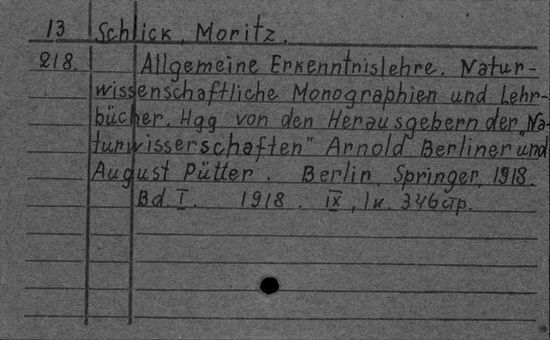 13 Schlick, Moritz.
218. Allgemeine Erkenntnislehre. Natur-
wissenschaftliche Monographien und Lehr-
bücher. Hgg von den Herausgebern der „Na-
turwisserschaften" Arnold Berliner und
August Pütter. Berlin, Springer, 1918.
Bd. I. 1918. IX, 1н. 346 стр.